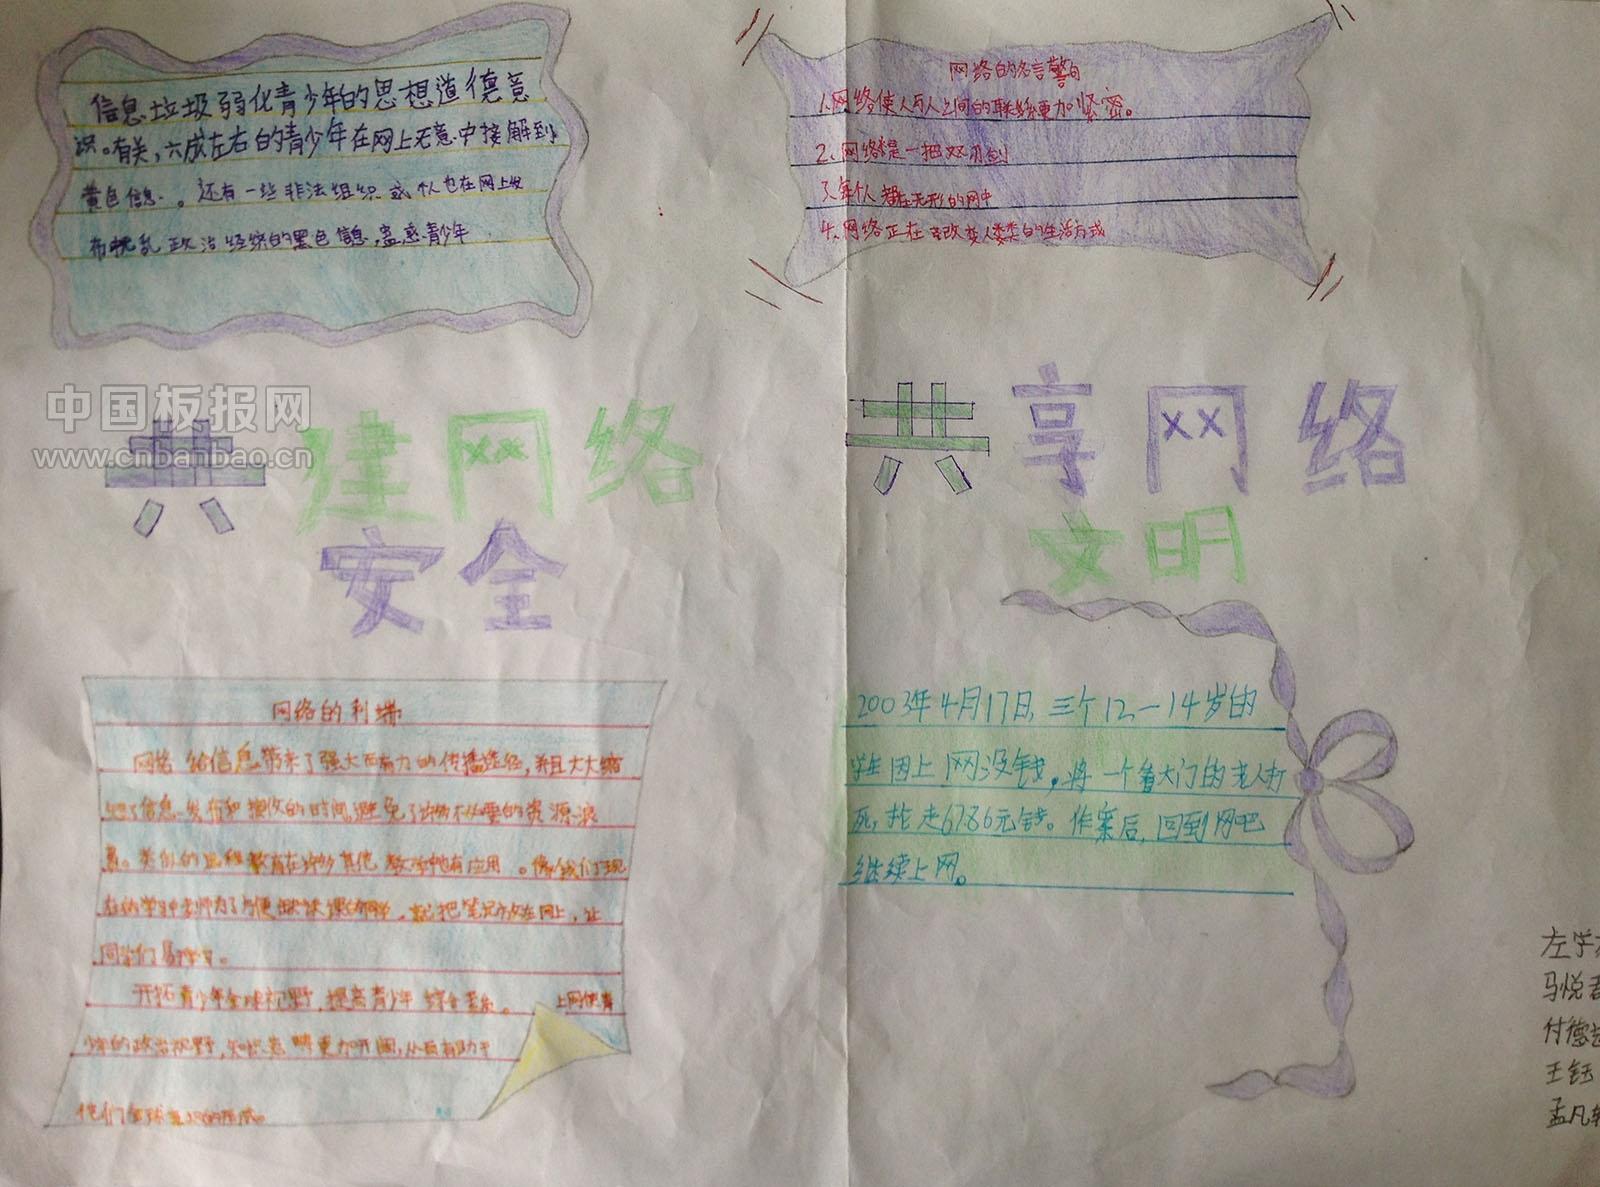 信息垃圾弱化青少年的思想道德意
识。有关,六成左右的青少年在网上无意中接解到
黄色信息。还有一些非法组织或个人也在网上发
布扰乱政治经济的黑色信息,蛊惑青少年
网络的名言警句
1.网络使人与人之间的联络更加紧密。
2.网络是一把双刃剑
3.每个人都在无形的网中
4.网络正在改变人类的生活方式
中国板报网
www.cnbanbao.cn
共建网络
安全
共享网络
文明
网络的利端
网络给信息带来了强大而有力的传播途径,并且大大缩
短了信息发布和接收的时间,避免了许多不必要的资源浪
费。类似的远程教育在许多其他教学中也有应用。像我们现
在的学习中老师为了方便缺课的同学,就把笔记放在网上,让
同学们易学习。
开拓青少年全球视野,提高青少年综合素质。上网使青
少年的政治视野,知识范畴更加开阔,从而有助于
他们全球意识的形成。
2003年4月17日,三个12—14岁的
学生因上网没钱,将一个看大门的老人打
死,抢走6786元钱。作案后,回到网吧
继续上网。
左学
马悦君
付德
王钰
孟凡